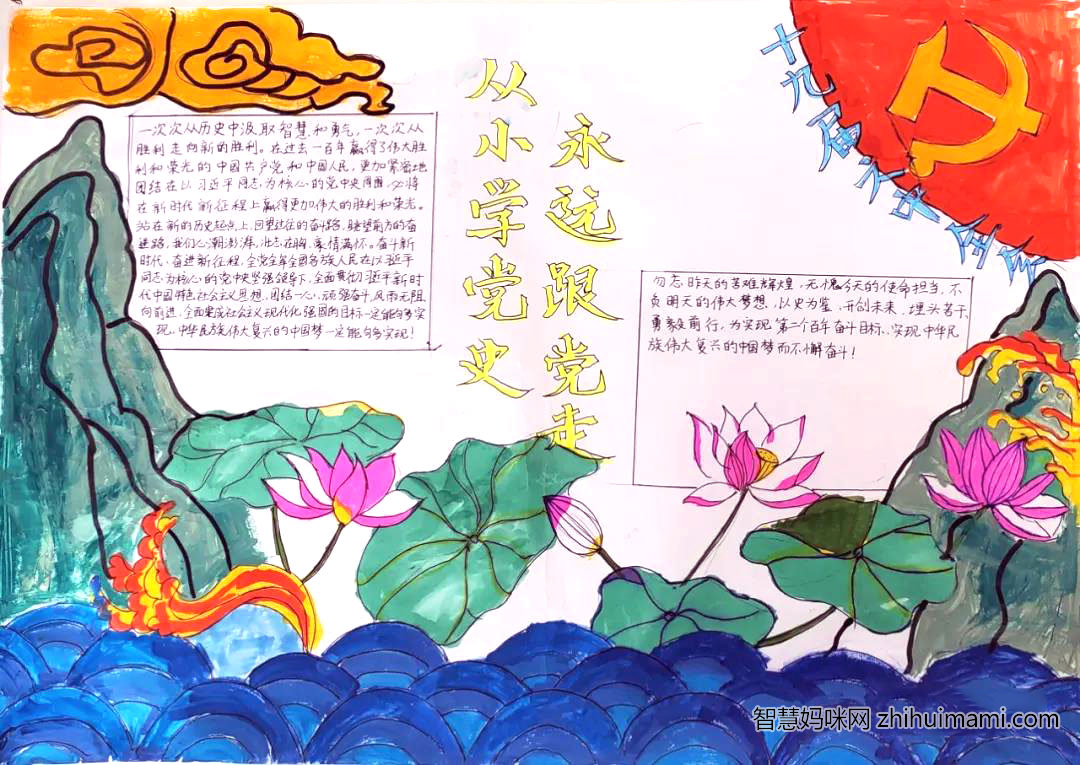 从小学党史
永远跟党走
十九届六中全会
一次次从历史中汲取智慧和勇气，一次次从
胜利走向新的胜利。在过去一百年赢得了伟大胜
利和荣光的中国共产党和中国人民，更加紧密地
团结在以习近平同志为核心的党中央周围，必将
在新时代新征程上赢得更加伟大的胜利和荣光。
站在新的历史起点上，回望过往的奋斗路，眺望前方的奋
进路，我们心潮澎湃，壮志在胸，豪情满怀。奋斗新
时代、奋进新征程，全党全军全国各族人民在以习近平
同志为核心的党中央坚强领导下，全面贯彻习近平新时
代中国特色社会主义思想，团结一心，顽强奋斗，风雨无阻
向前进，全面建成社会主义现代化强国的目标一定能够实
现，中华民族伟大复兴的中国梦一定能够实现！
勿忘昨天的苦难辉煌，无愧今天的使命担当，不
负明天的伟大梦想，以史为鉴、开创未来，埋头苦干、
勇毅前行，为实现第二个百年奋斗目标、实现中华民
族伟大复兴的中国梦而不懈奋斗！
智慧妈咪网 zhihuimami.com